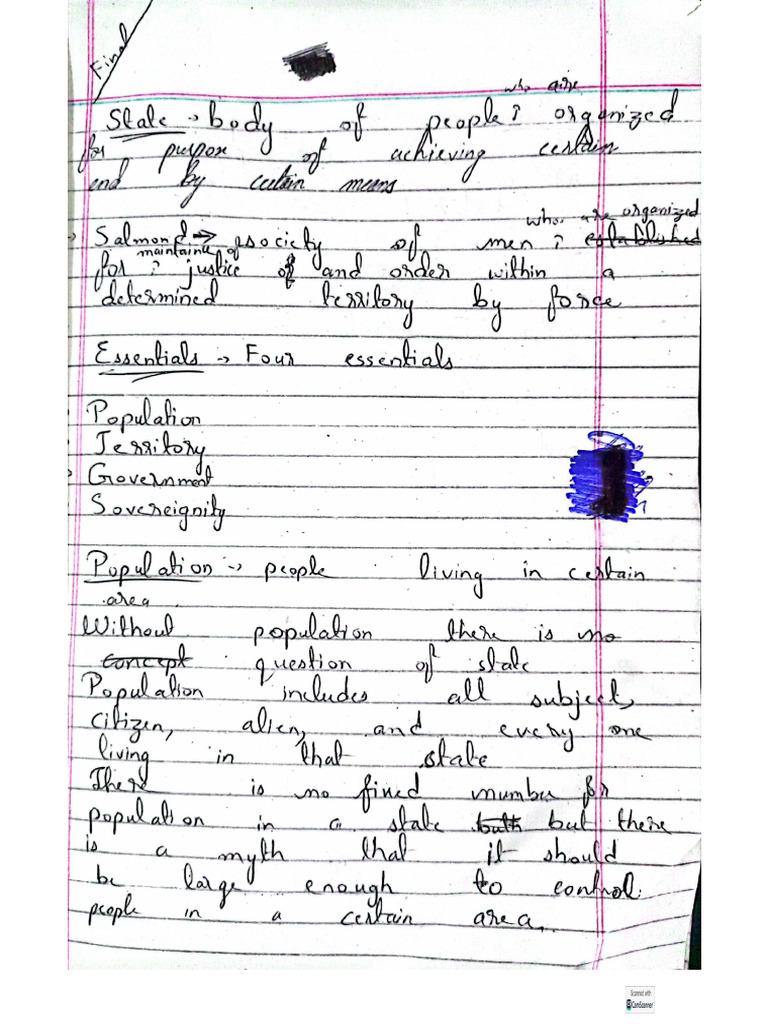 Final
State → body of people who are organized
for purpose of achieving certain
end by certain means
Salmond → society of men who are organized established
for maintaining of justice of and order within a
determined territory by force
Essentials → Four essentials
Population
Territory
Government
Sovereignity
Population → people living in certain
area
Without population there is no
concept question of state
Population includes all subject,
citizen, alien, and every one
living in that state
There is no fixed number for
population in a state but there
is a myth that it should
be large enough to control
people in a certain area.
Scanned with
CamScanner